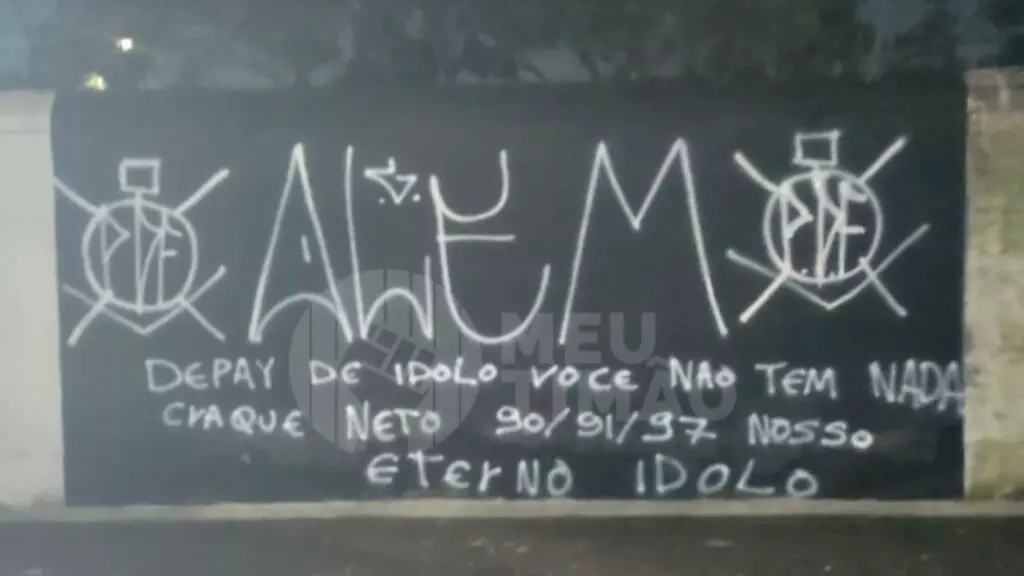 ALEM
DEPAY DE IDOLO VOCE NAO TEM NADA
CRAQUE NETO 90/91/97 NOSSO
ETERNO IDOLO
MEU
TIMÃO